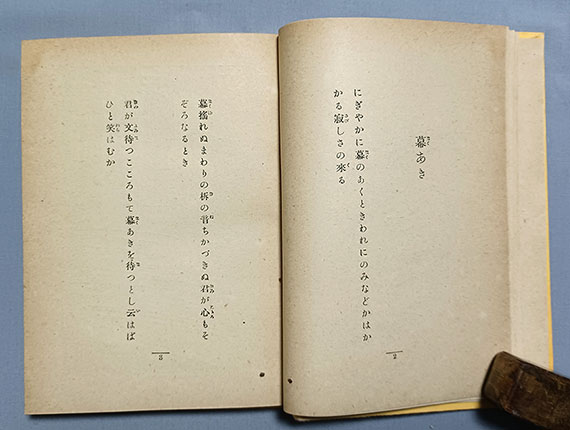 幕あき
にぎやかに幕のあくときわれにのみなどかはか
かる寂しさの來る
2
幕搖れぬまわりの柝の音ちかづきぬ君が心もそ
ぞろなるとき
君が文待つこころもて幕あきを待つとし云はば
ひと笑はむか
3